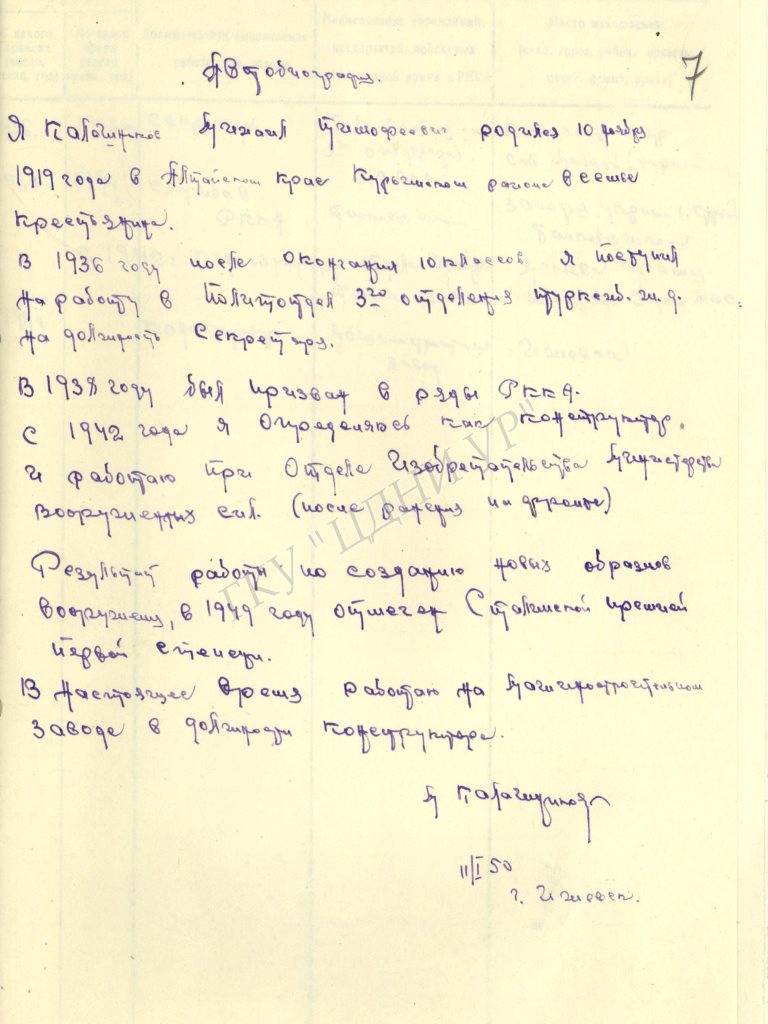 7
Автобиография.
Я Калашников Михаил Тимофеевич родился 10 ноября
1919 года в Алтайском крае Курьинском районе в семье
крестьянина.
В 1936 году после окончания 10 классов я поступил
на работу в Политотдел 3го отделения Турксиб. ж.д.
на должность секретаря.
В 1938 году был призван в ряды РККА.
С 1942 года я определяюсь как конструктор
и работаю при Отделе Изобретательства Министерства
вооруженных сил. (после ранения на фронте)
Результат работы по созданию новых образцов
вооружения, в 1949 году отмечен Сталинской премией
первой степени.
В настоящее время работаю на Машиностроительном
заводе в должности конструктора.
М Калашников
11/I 50
г. Ижевск.
ГКУ "ЦДНИ УР"